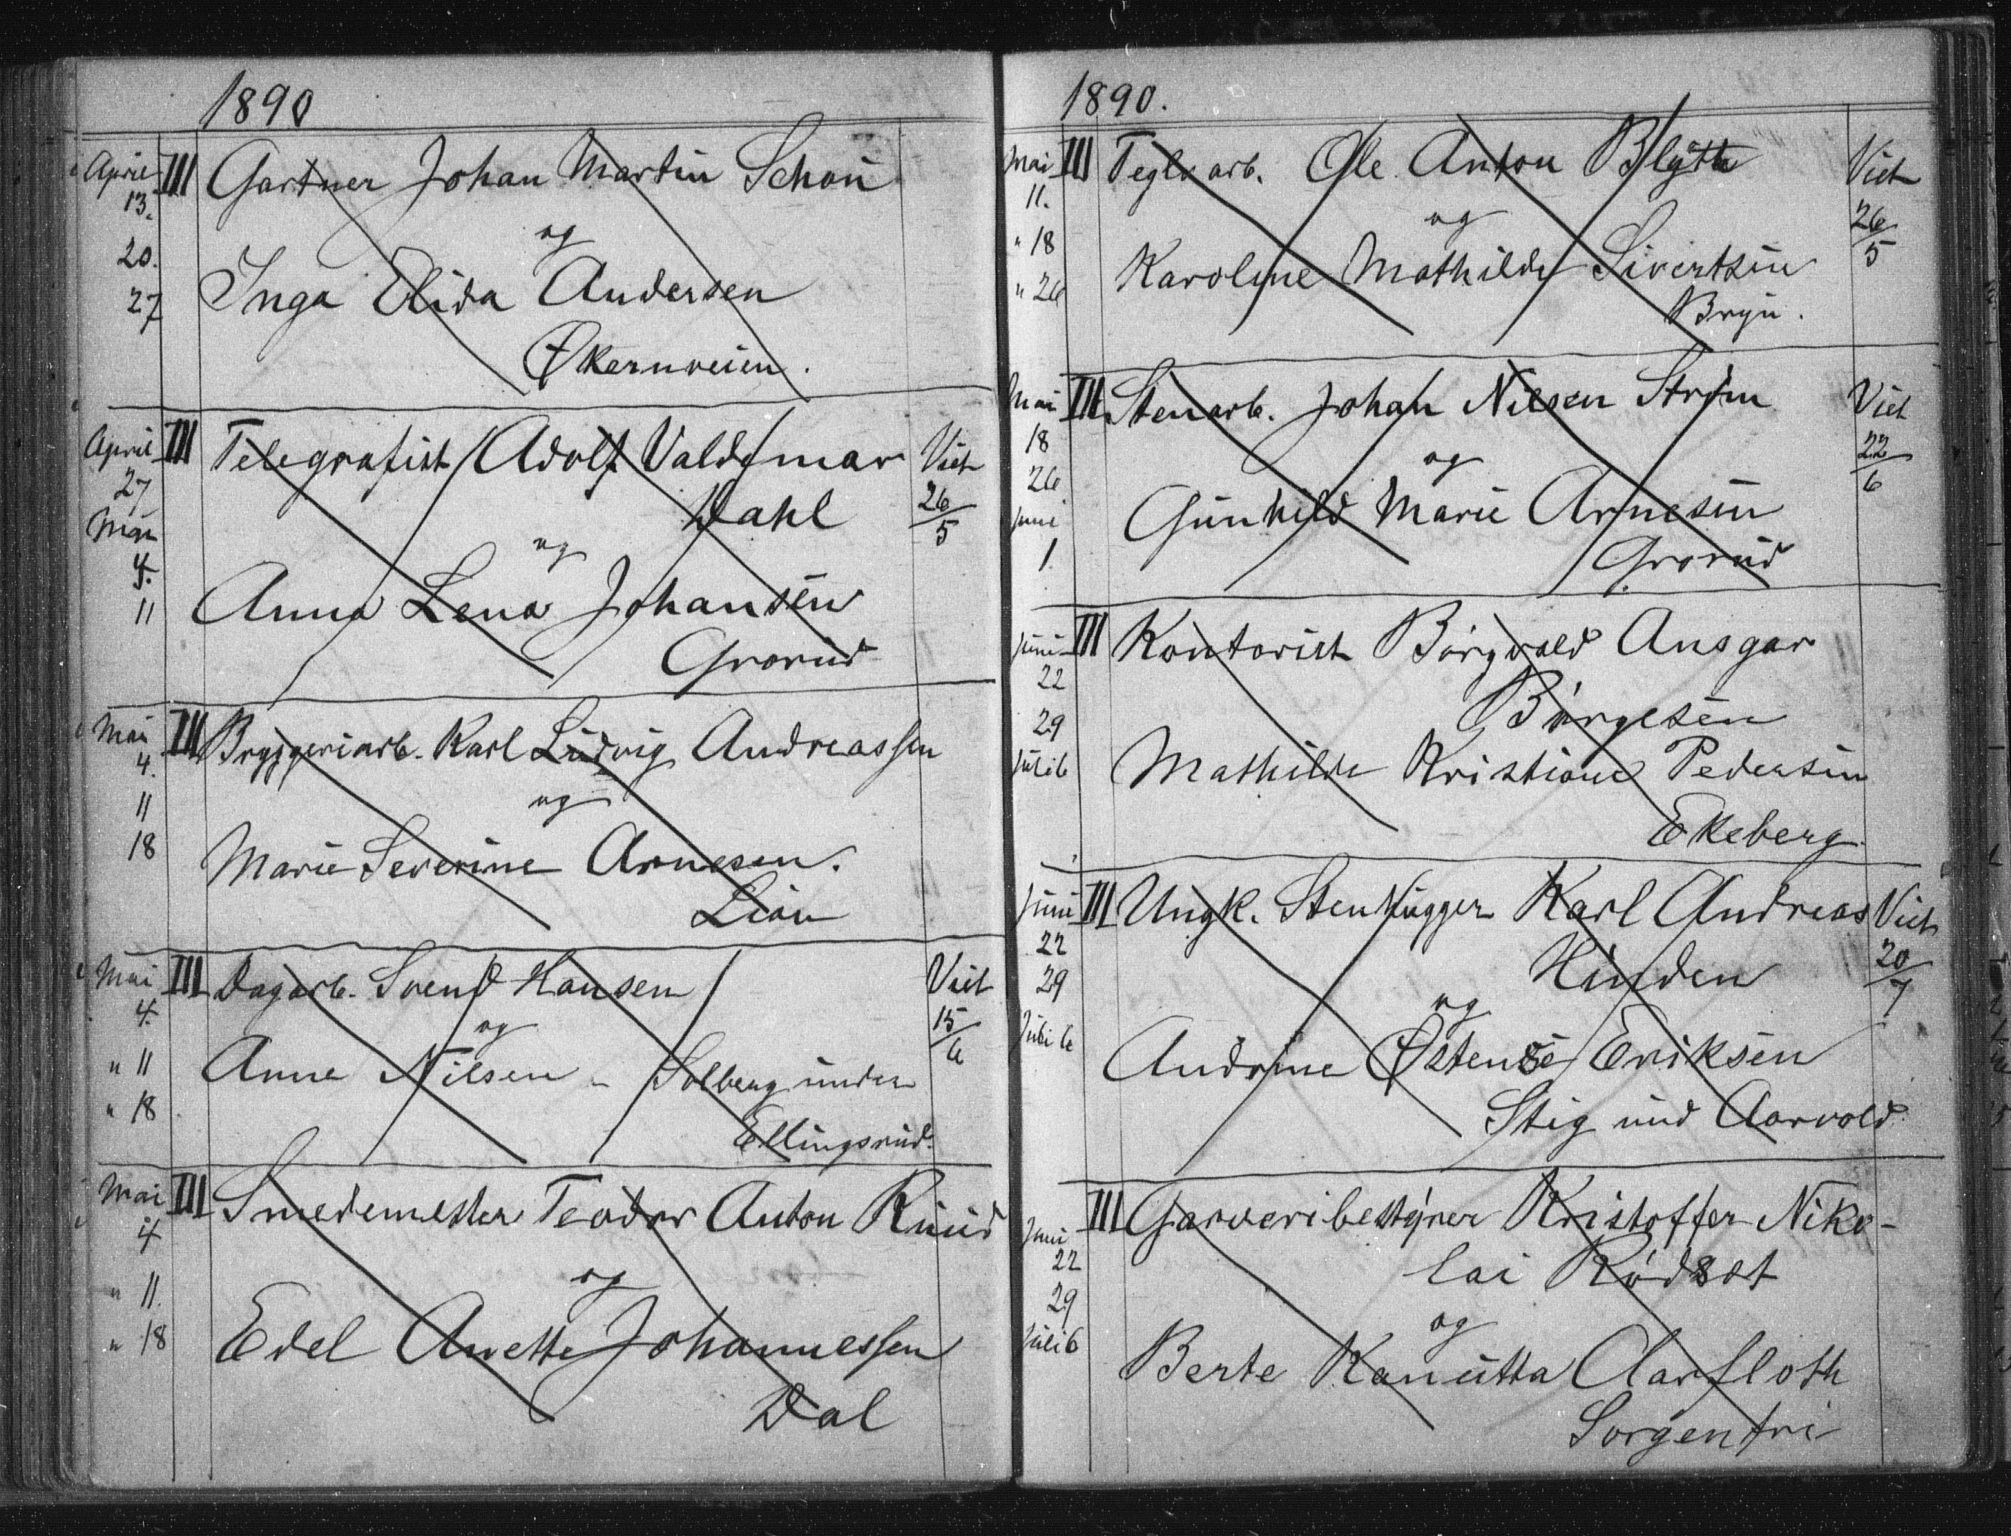 1890
April III Gartner Johan Martin Schøn
13.
og
20.
27 Inga Elida Andersen
Økernveien.
April III Telegrafist Adolf Valdemar Viet
27 Dahl 26/5
Mai
4. og
11 Anna Lena Johansen
Grorud
Mai III Bryggeriarb. Karl Ludvig Andreassen
4.
11 og
18 Marie Severine Arnesen.
Lian
Mai III Dagarb. Svend Hansen Viet
4. og 15/6
" 11 Anne Nilsen - Solberg under
" 18 Ellingsrud.
Mai III Smedemester Teodor Anton Ruud
4
" 11. og
" 18 Edel Anette Johannessen
Dal
1890.
Mai III Teglv arb. Ole Anton Blytt Viet
11. og 26/5
" 18 Karoline Mathilde Sivertsen
" 26 Bryn.
Mai III Stenarb. Johan Nilsen Strøm Viet
18 og 22/6
26 Gunhild Marie Arnesen
Juni
1. Grorud
Juni III Kontorist Børgvald Ansgar
22 Børgesen
29
Juli 6 Mathilde Kristiane Pedersen
Ekeberg.
Juni III Ungk. Stenhugger Karl Andreas Viet
22 Hinden 20/7
29 og
Juli 6 Andrine Østense Eriksen
Stig und Aarvold
Juni III Garveribestyrer Kristoffer Niko-
22 lai Rødsæt
29 og
Juli 6 Berte Kanutta Aarfloth
Sorgenfri